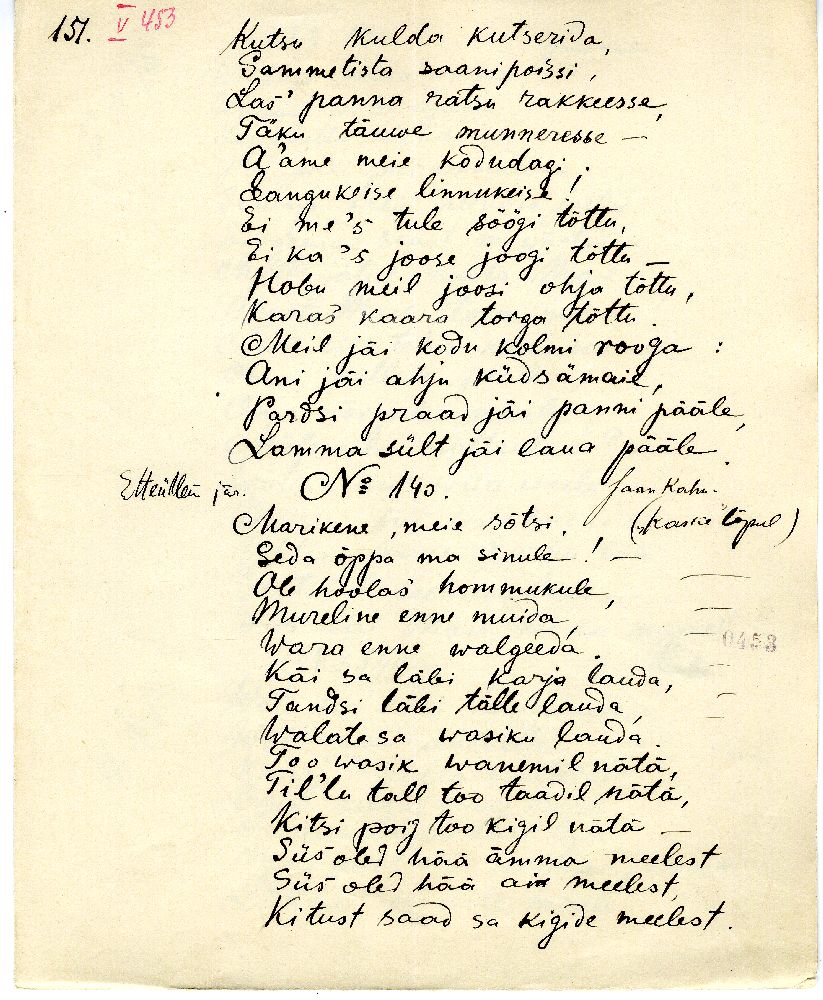 151. V 453
Kutsu kulda kutserida,
Sammetista saanipoissi,
Las' panna ratsu rakkeesse,
Täku täuwe munneresse —
A'ame meie kodudagi.
Laugukeise linnukeise!
Ei me's tule söögi tõttu,
Ei ka's joose joogi tõttu —
Hobu meil joosi ohja tõttu,
Karas' kaara torga tõttu.
Meil jäi kodu kolmi rooga:
Ani jäi ahju küdsämäie,
Pardsi praad jäi panni pääle,
Lamma sült jäi laua pääle.
jär. No 140. Jaan Kahu.
Marikene, meie sõtsi, ("Kaske" lõpul)
Seda õppa ma sinule! —
Ole hoolas hommukule,
Mureline enne muida,
Wara enne walgeeda.
0453
Käi sa läbi karja lauda,
Tandsi läbi tälle lauda,
Walata sa wasiku lauda.
Too wasik wanemil nätä,
Til'lu tall too taadil nätä,
Kitsi poig too kigil nätä —
Siis oled hää ämma meelest
Siis oled hää äia meelest,
Kitust saad sa kigide meelest.